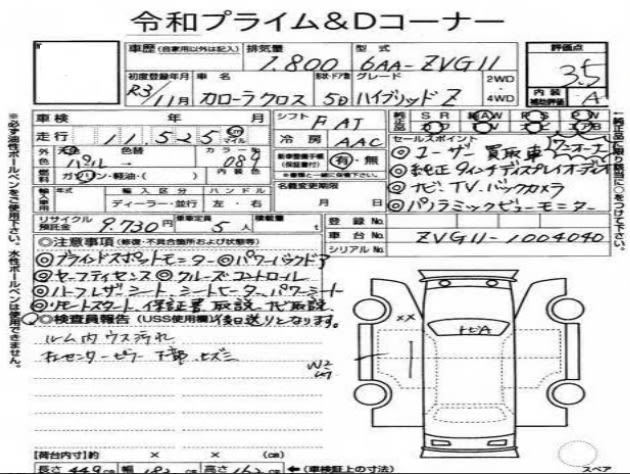 令和プライム&Dコーナー
車歴 (自家用以外は記入) 排気量 1.800 型式 6AA-ZVG11
評価点 3.5
内装補助評価 A
初度登録年月 R3/11月 車名 カローラクロス 形状・ドア数 5D グレード ハイブリッドZ 2WD・4WD
車検 年 月 シフト FAT
走行 11,525 km マイル 冷房 AAC
純正装備品 SR AW PS PW
外装色 元色 パール 色替→ カラーNo. 089 内装色
燃料 ガソリン・軽油・( )
新車整備手帳(保証書付) 有・無
名義変更期限 月 日
輸入車用 年式 輸入区分 ディーラー・並行 ハンドル 左・右
セールスポイント
◎ユーザー買取車 ワンオーナー
◎純正9インチディスプレイオーディオ
◎ナビ、TV、バックカメラ
◎パノラミックビューモニター
リサイクル預託金 9.730円 乗車定員 5人 積載量 t
登録No.
車台No. ZVG11-1004040
シリアルNo.
◎注意事項 (修復・不具合箇所および状態等)
◎ブラインドスポットモニター ◎パワーバックドア
◎セーフティセンス ◎クルーズコントロール
◎ハーフレザーシート、シートヒーター、パワーシート
◎リモートスタート、保証書、取説、ナビ取説、
◎検査員報告 (USS使用欄) 後日送りとなります。
ルーム内ウス汚れ
右センターピラー下部ヒズミ
W2
XX
【荷台内寸】約 × × (cm)
長さ 449cm 幅 182 高さ 162cm ←(車検証上の寸法)
スペア
※必ず油性ボールペンをご使用下さい。水性ボールペンは使用できません。